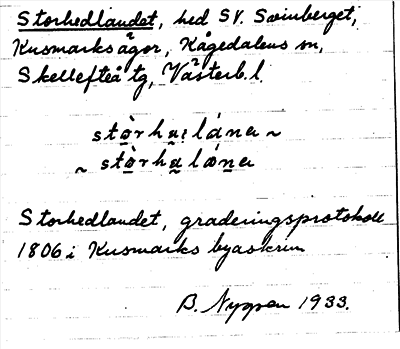 Storhedlandet, hed SV. Svinberget,
Kusmarks ägor, Kågedalens sn,
Skellefteå tg, Västerb. l.
stòrhu̯lána ~
~ stòrhu̯lána
Storhedlandet, graderingsprotokoll
1806 i Kusmarks byaskrin
B. Nygren 1933.